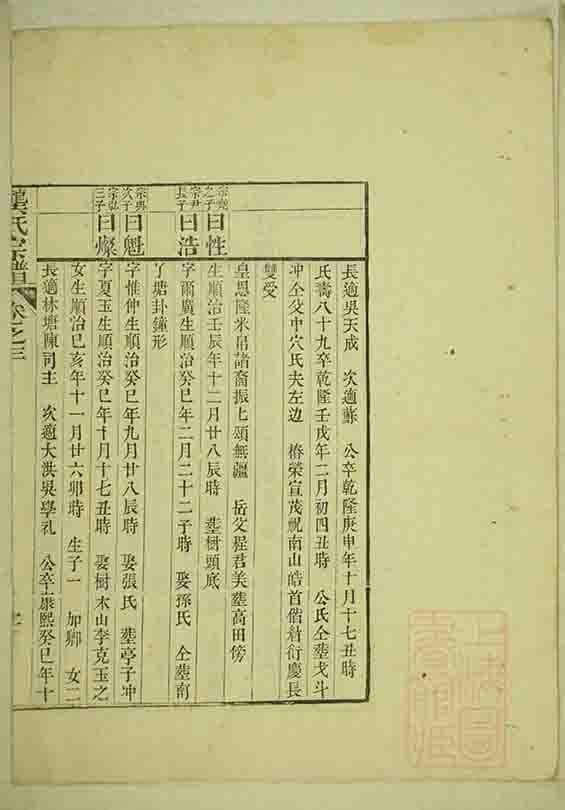 長適吳天成　次適蘇　公卒乾隆庚申年十月十七丑時
氏壽八十九卒乾隆壬戌年二月初四丑時　公氏仝塟戈斗
冲仝父中穴氏夫左边　椿榮宣茂祝南山皓首偕衍慶長
雙受
皇恩隆米帛諸裔振上頌無疆　岳父程君美塟高田傍
宗堯之子
曰性
生順治壬辰年十二月廿八辰時　塟樹頭底
宗尹長子
曰浩
字爾廣生順治癸巳年二月二十二子時　娶孫氏　仝塟南
了塘卦鐘形
宗典次子
曰魁
字惟仲生順治癸巳年九月廿八辰時　娶張氏　塟亭子冲
宗弘三子
曰燦
字夏玉生順治癸巳年十月十七丑時　娶樹木山李克玉之
女生順治己亥年十一月廿六卯時　生子一　加卿　女二
長適林塘陳司主　次適大洪吳學礼　公卒康熙癸巳年十
龔氏宗譜　卷之三